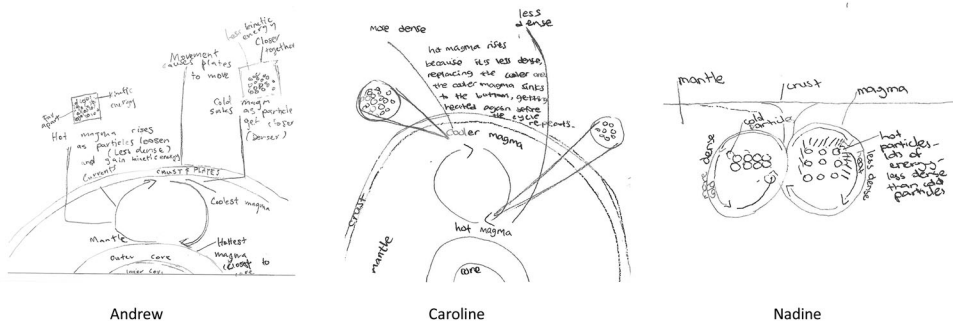 Less kinetic
energy
Closer
together
Movement
causes plates
to move
kinetic
energy
far
apart
Cold magma
sinks as particle
get closer
(Denser)
Hot magma rises
as particles loosen
(Less dense)
and gain kinetic energy
Currents
CRUST & PLATES
Coolest magma
Mantle
Hottest
magma
closest to
core
Outer core
Inner Core
Andrew
more dense
less
dense
hot magma rises
because it is less dense,
replacing the cooler one
the cooler magma sinks
to the buttom, getting
heated again before
the cycle
repeats.
cooler magma
crust
mantle
hot magma
core
Caroline
mantle
crust
magma
cold
particle
more dense
cold
hot
less dense
hot
particles-
lots of
energy-
less dense
than cold
particles
Nadine